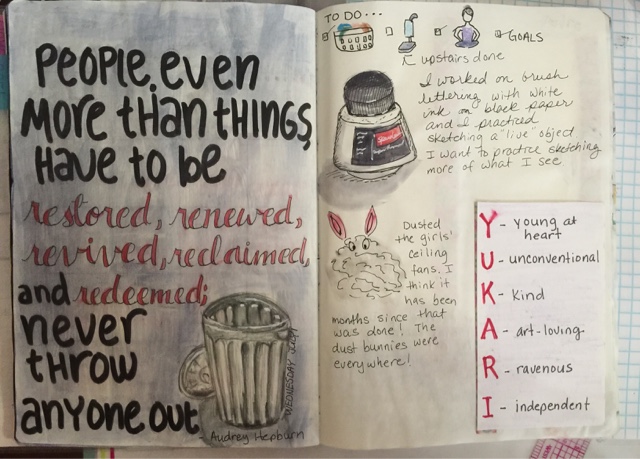 PEOPLE, EVEN
MORE THAN THINGS,
HAVE to be
restored, renewed,
revived, reclaimed,
and redeemed;
never
throw
anyone out
- Audrey Hepburn
TO DO...
GOALS
upstairs done
I worked on brush
lettering with white
ink on black paper
and I practiced
sketching a "live" object
I want to practice sketching
more of what I see
Dusted
the girls'
ceiling
fans. I
think it
has been
months since that
was done! The
dust bunnies were
everywhere!
Y - young at
heart
U - unconventional
K - Kind
A - art-loving
R - ravenous
I - independent